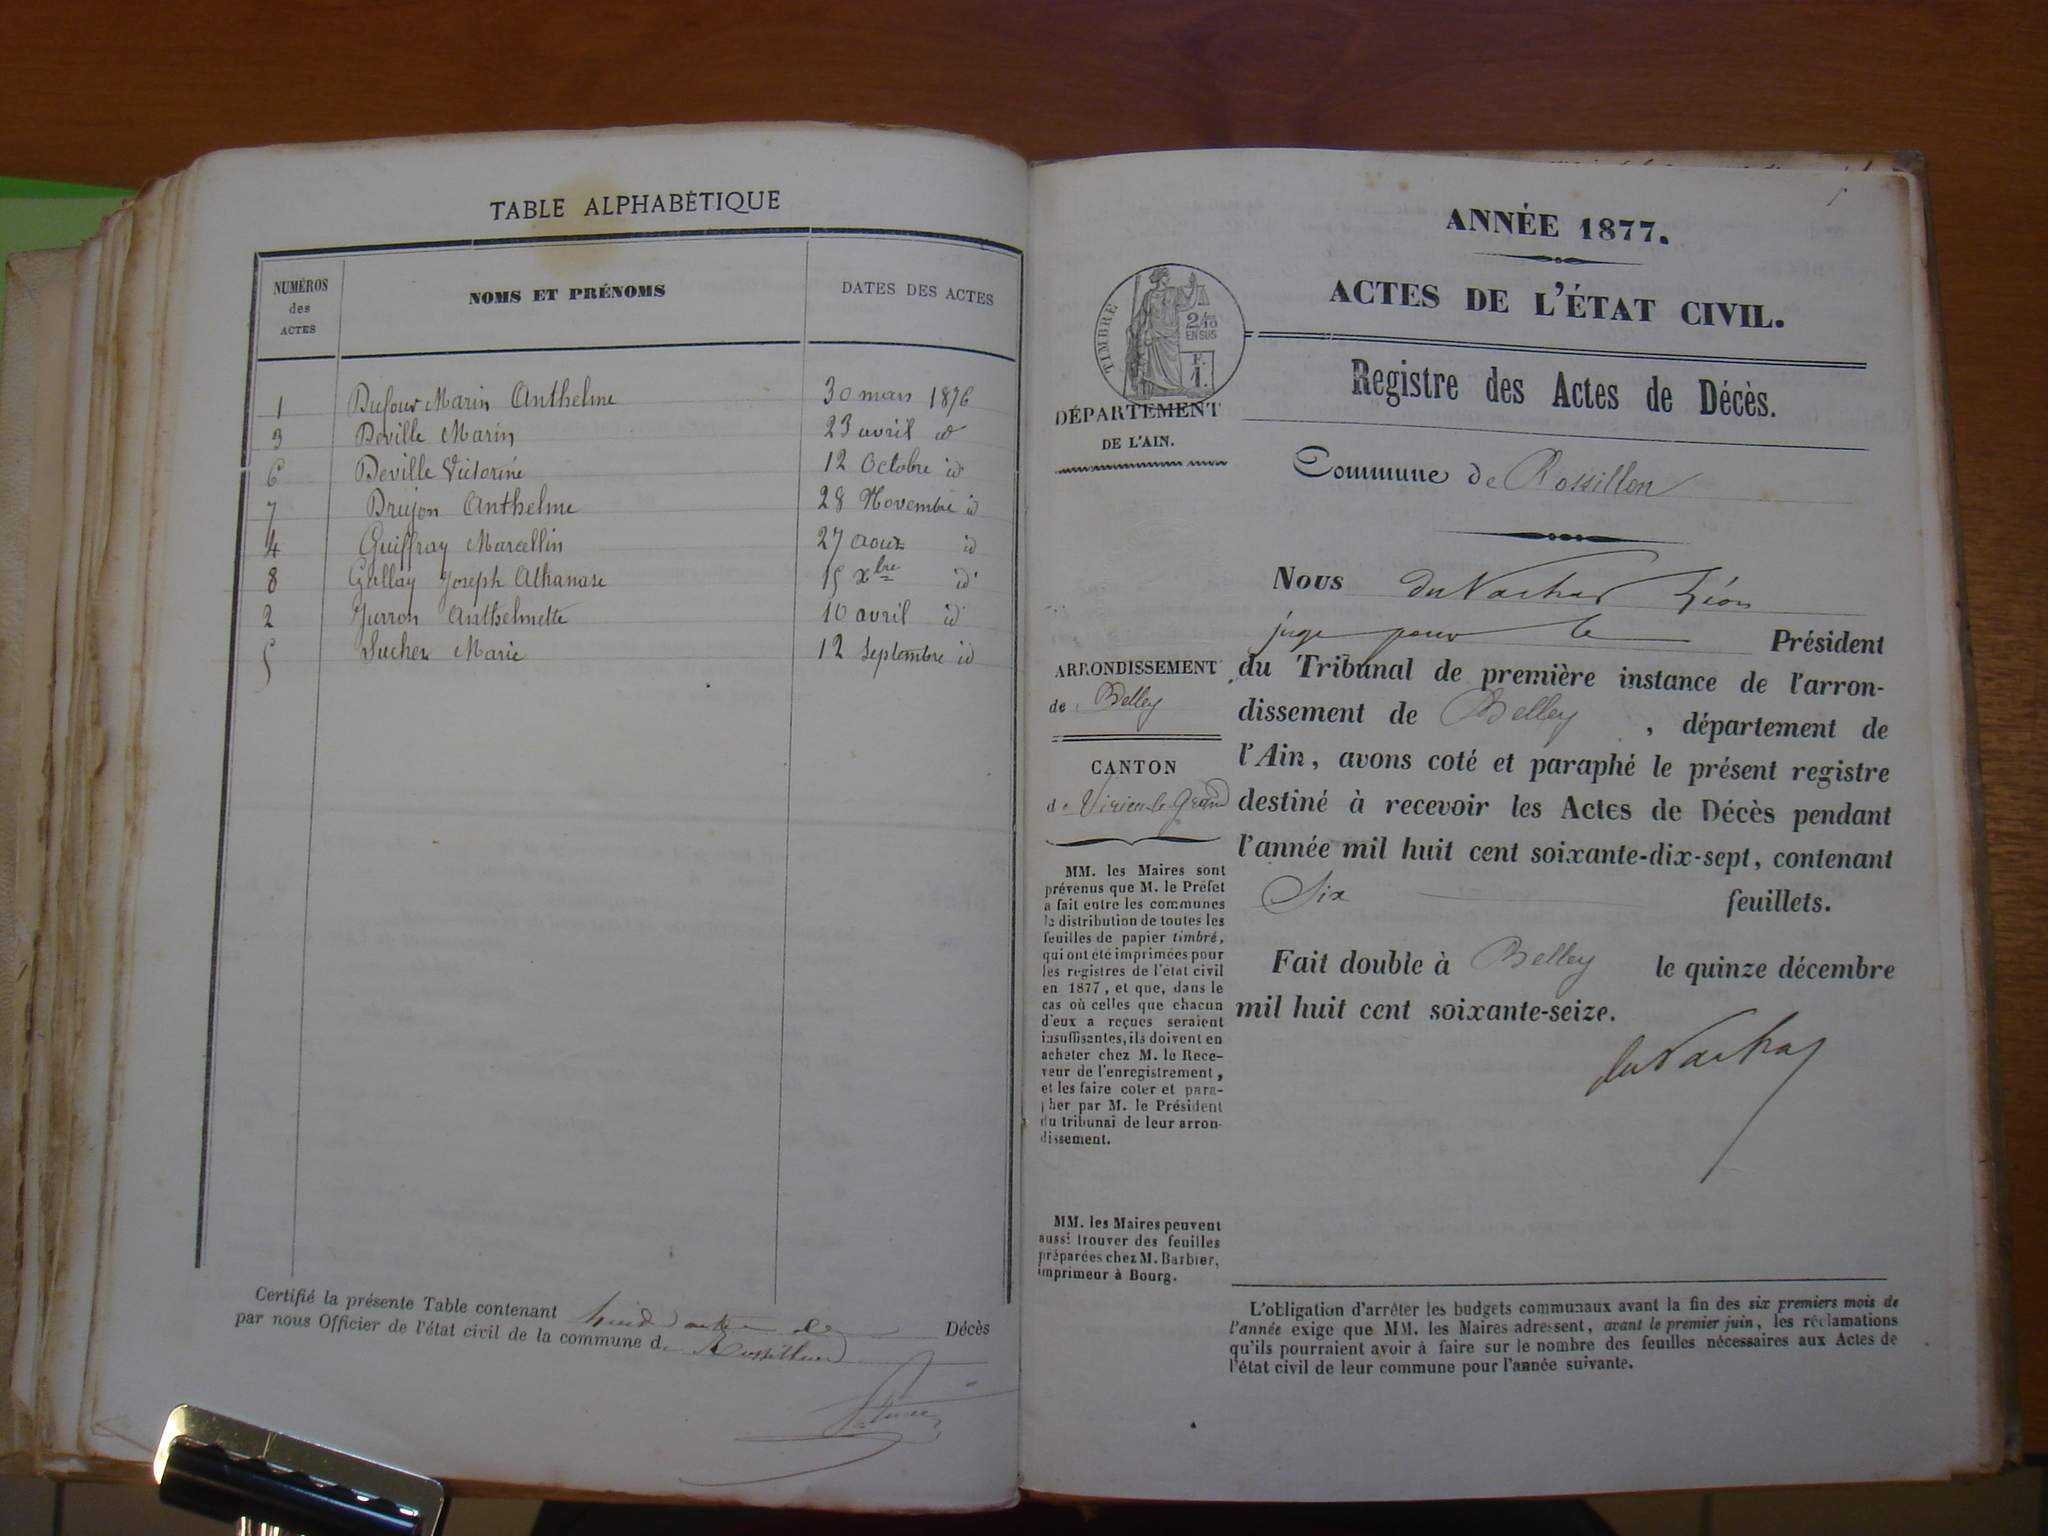 TABLE ALPHABÉTIQUE
NUMÉROS des ACTES
NOMS ET PRÉNOMS
DATES DES ACTES
1 Dufour Marin Anthelme 30 mars 1876
3 Deville Marin 23 avril id
6 Deville Victorine 12 Octobre id
7 Drujon Anthelme 28 Novembre id
4 Guiffray Marcellin 27 Aout id
8 Gallay Joseph Athanase 15 Xbre id
2 Anthelmette 10 avril id
5 Marie 12 Septembre id
Certifié la présente Table contenant huit actes de Décès
par nous Officier de l'état civil de la commune de Rossillon
ANNÉE 1877.
ACTES DE L'ÉTAT CIVIL.
TIMBRE
2/10
EN SUS
F.
1.
DÉPARTEMENT
DE L'AIN.
Registre des Actes de Décès.
Commune de Rossillon
ARRONDISSEMENT
de Belley
CANTON
de Virieu-le-Grand
MM. les Maires sont
prévenus que M. le Préfet
a fait entre les communes
la distribution de toutes les
feuilles de papier timbré,
qui ont été imprimées pour
les registres de l'état civil
en 1877, et que, dans le
cas où celles que chacun
d'eux a reçues seraient
insuffisantes, ils doivent en
acheter chez M. le Rece-
veur de l'enregistrement,
et les faire coter et para-
pher par M. le Président
du tribunal de leur arron-
dissement.
MM. les Maires peuvent
aussi trouver des feuilles
préparées chez M. Barbier,
imprimeur à Bourg.
Nous du Nachat Léon
juge pour le Président
du Tribunal de première instance de l'arron-
dissement de Belley, département de
l'Ain, avons coté et paraphé le présent registre
destiné à recevoir les Actes de Décès pendant
l'année mil huit cent soixante-dix-sept, contenant
Six feuillets.
Fait double à Belley le quinze décembre
mil huit cent soixante-seize.
du Nachat
L'obligation d'arrêter les budgets communaux avant la fin des six premiers mois de
l'année exige que MM. les Maires adressent, avant le premier juin, les réclamations
qu'ils pourraient avoir à faire sur le nombre des feuilles nécessaires aux Actes de
l'état civil de leur commune pour l'année suivante.